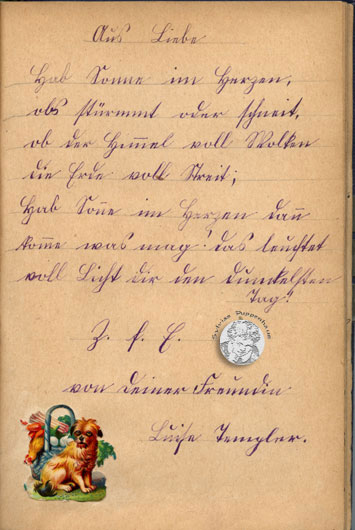 Aus Liebe
Hab Sonne im Herzen,
obs stürmmt oder schneit,
ob der Himmel voll Wolken
die Erde voll Streit;
Hab Soñe im Herzen dañ
kom̄e was mag! das leuchtet
voll Licht dir den dunkelsten
Tag!
Z. f. E.
Sylvias Puppenheim
von Deiner Freundin
Luise Templer.